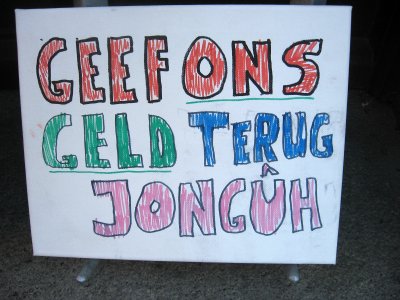 GEEF ONS
GELD TERUG
JONGÛH